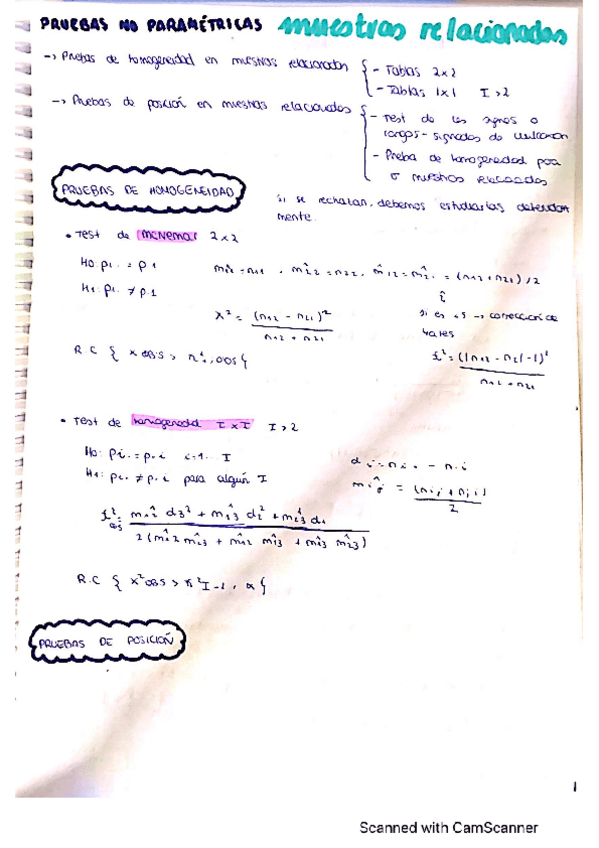 PRUEBAS NO PARAMÉTRICAS muestras relacionadas
-> Pruebas de homogeneidad en muestras relacionadas { - Tablas 2x2
- Tablas IxI I>2
-> Pruebas de posición en muestras relacionados { - Test de los signos o
rangos-signados de wilcoxon
- Prueba de homogeneidad para
muestras relacionadas
PRUEBAS DE HOMOGENEIDAD
si se rechazan, debemos estudiarlas
mente.
• Test de McNemar 2x2
H0: pi. = p.1
H1: pi. ≠ p.1
m̂12 = m̂21 = (n12+n21)/2
si es <5 -> correccion de
Yates
X² = (n12 - n21)²
n12 + n21
n12 + n21
R.C {
• Test de homogeneidad IxI I>2
H0: pi. = p.i i=1.. I
H1: pi. ≠ p.i para algún I
di = ni. - n.i
m̂ij = (nij + nji)
2
m̂12 d3² + m̂13 d2² + m̂23 d1
2(m̂12 m̂23 + m̂12 m̂13 + m̂13 m̂23)
R.C { X²obs > X²I-1, α {
PRUEBAS DE POSICIÓN
1
Scanned with CamScanner